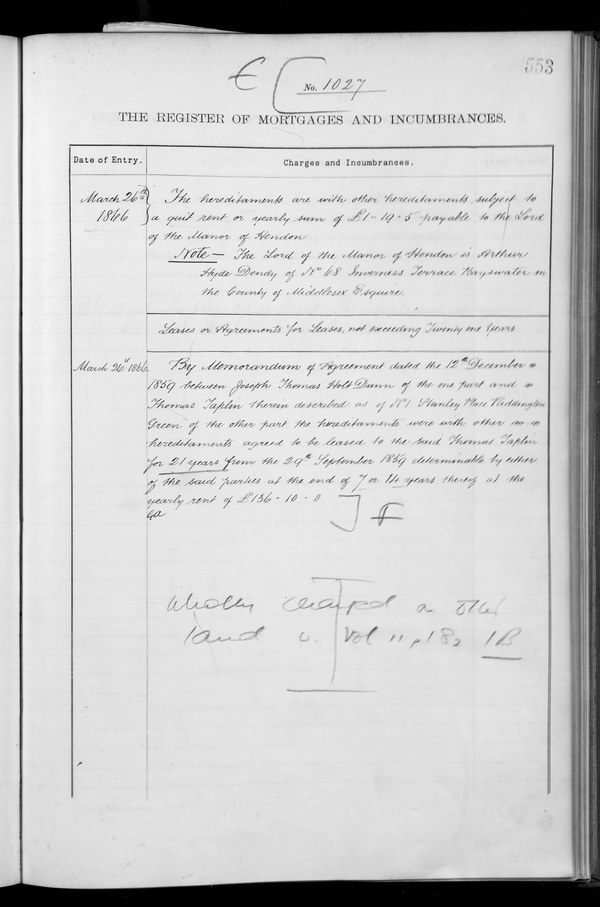 553
E
No. 1027
THE REGISTER OF MORTGAGES AND INCUMBRANCES.
Date of Entry.
Charges and Incumbrances.
March 26th 1866
The hereditaments are with other hereditaments subject to
a quit rent or yearly sum of £1-19-5 payable to the Lord
of the Manor of Hendon
Note — The Lord of the Manor of Hendon is Arthur
Hyde Dendy of No 68 Inverness Terrace Bayswater in
the County of Middlesex Esquire.
Leases or Agreements for Leases, not exceeding Twenty one Years
March 26th 1866
By Memorandum of Agreement dated the 12th December
1859 between Joseph Thomas Holt Dunn of the one part and
Thomas Taplin therein described as of No 1 Stanley Place Paddington
Green of the other part the hereditaments were with other
hereditaments agreed to be leased to the said Thomas Taplin
for 21 years from the 29th September 1859 determinable by either
of the said parties at the end of 7 or 14 years thereof at the
yearly rent of £136-10-0
wholly charged on other
land v. Vol 11 p 182 1B